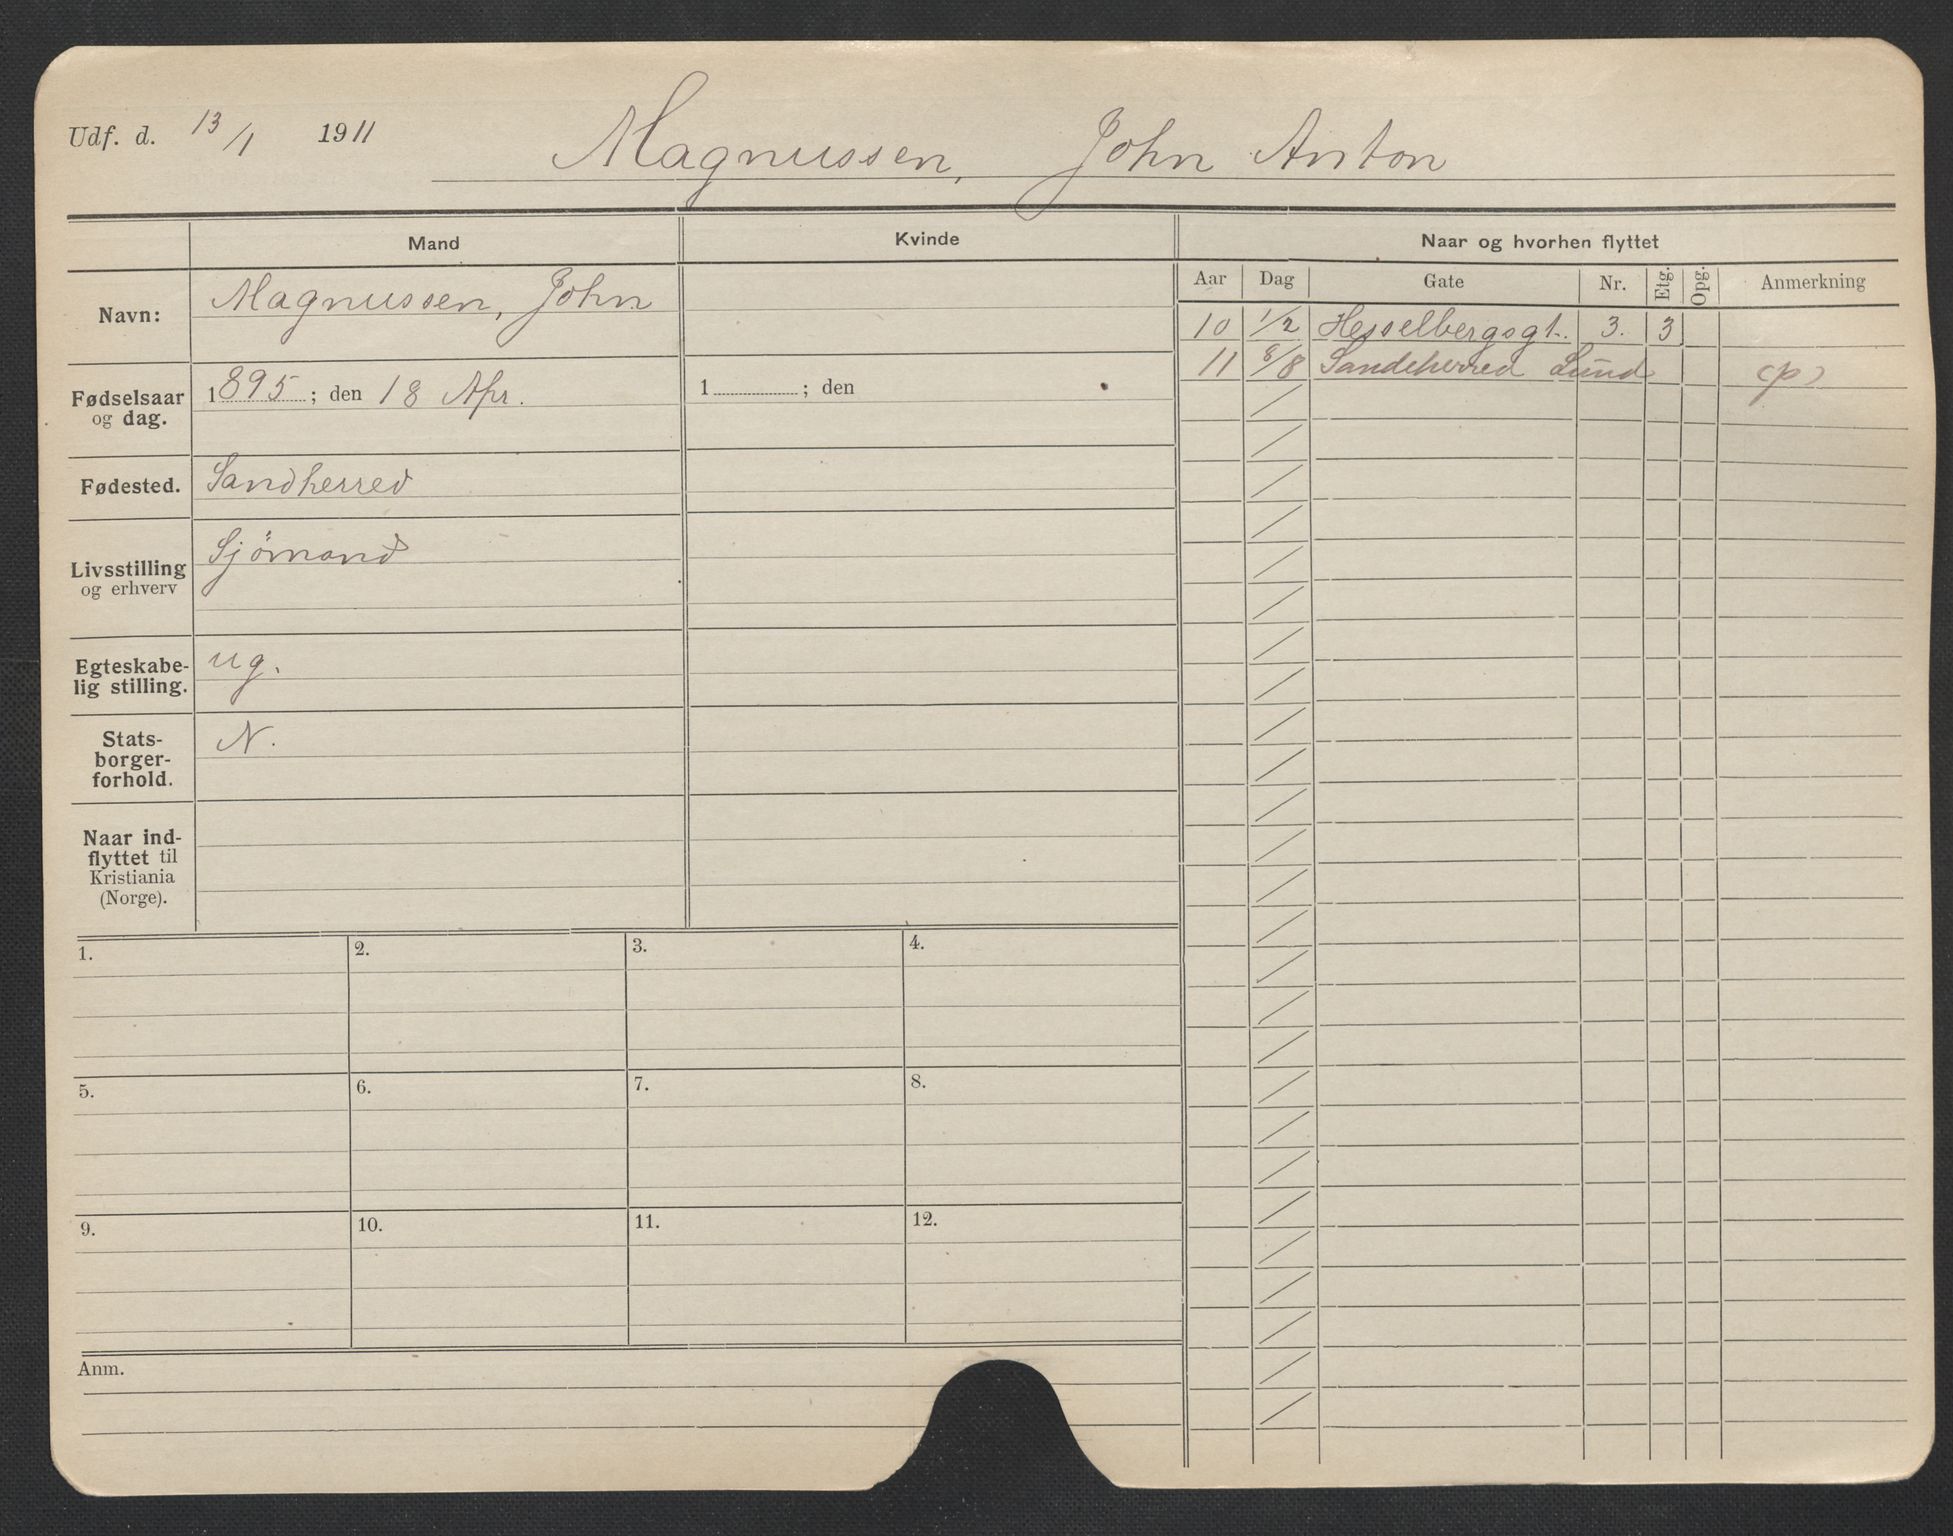 Udf. d. 13/1 1911 Magnussen, John Anton
Mand Kvinde Naar og hvorhen flyttet
Aar Dag Gate Nr. Etg. Opg. Anmerkning
Navn: Magnussen, John
10 1/2 Hesselbergsgt. 3. 3
11 8/8 Sandeherred Lund (p)
Fødselsaar og dag. 1895; den 18 Apr. 1 ; den
Fødested. Sandherred
Livsstilling og erhverv Sjömand
Egteskabe-
lig stilling. ug.
Stats-
borger-
forhold. N.
Naar ind-
flyttet til
Kristiania
(Norge).
1. 2. 3. 4.
5. 6. 7. 8.
9. 10. 11. 12.
Anm.